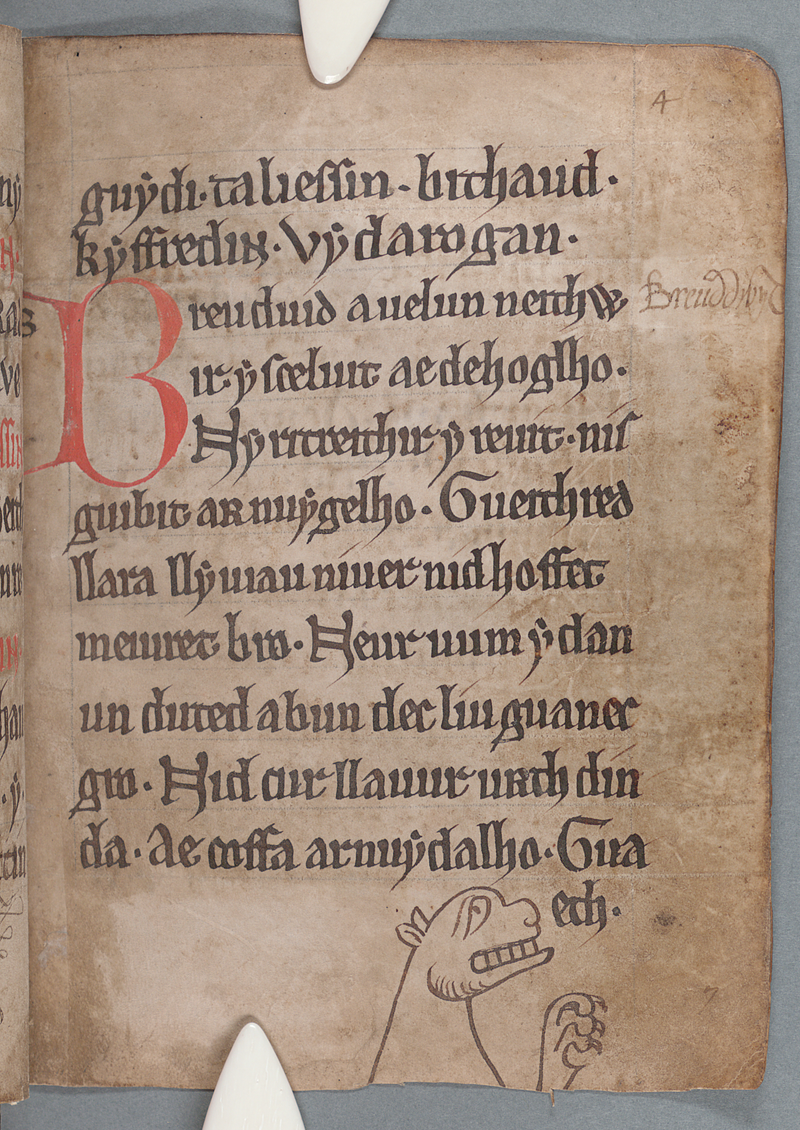 4
guẏdi. talieſſin. bithaud.
kẏffredin. vẏ darogan.
Breuduid a uelun neithwir.
ẏ sceluit ae dehoglho.
Nẏ ritreithir ẏ reuit. niſ
guibit ar nuẏ gelho. Gueithred
llara llẏuiau niuer nid hoffet
meiuret bro. Neur uum ẏ dan
un duted a bun dec liu guanec
gro. Nid cur llauur urth din
da. Ae coffa ar nuẏ dalho. Gua
eth.
Breuddwyd